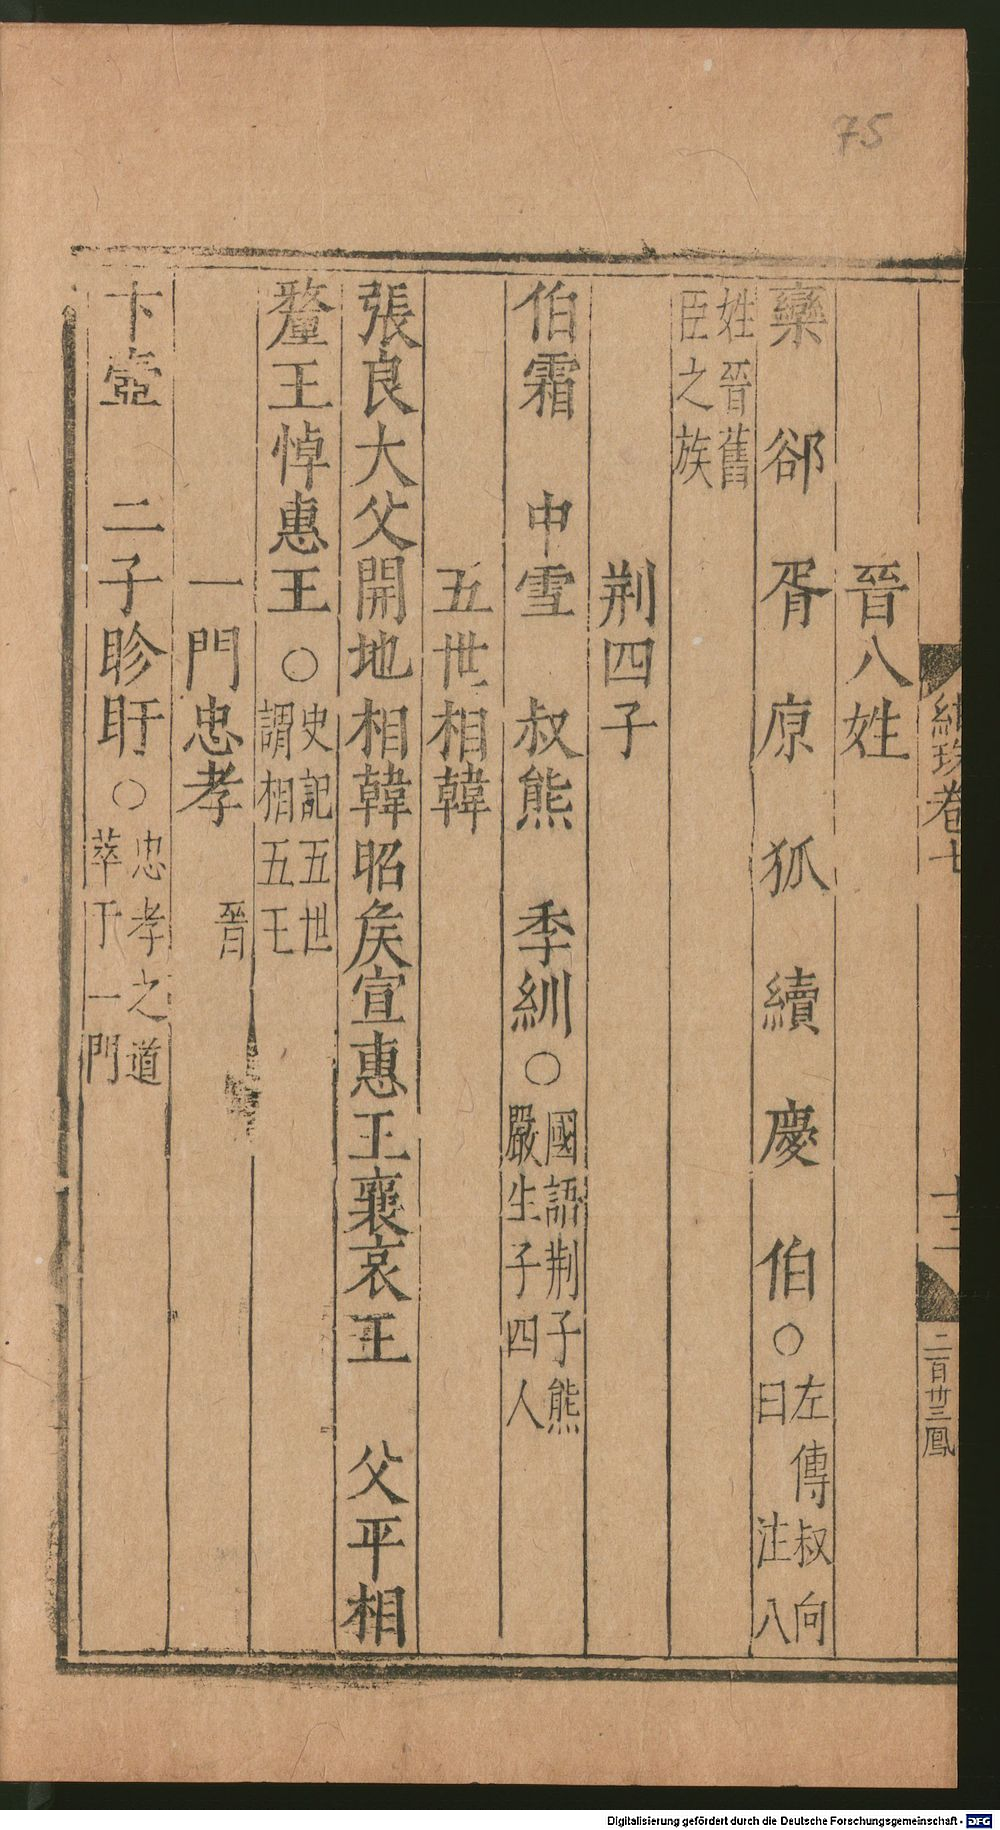 75
卷七
十三
二百廿三鳳
晉八姓
欒 郤 胥 原 狐 續 慶 伯○左傳叔向
曰 注八
姓晉舊
臣之族
荆四子
伯霜 中雪 叔熊 季紃○國語荆子熊
嚴生子四人
五世相韓
張良大父開地相韓昭矦宣惠王襄哀王 父平相
釐王悼惠王○史記五世
謂相五王
一門忠孝 晉
卞壺 二子眕盱○忠孝之道
萃于一門
Digitalisierung gefördert durch die Deutsche Forschungsgemeinschaft - DFG